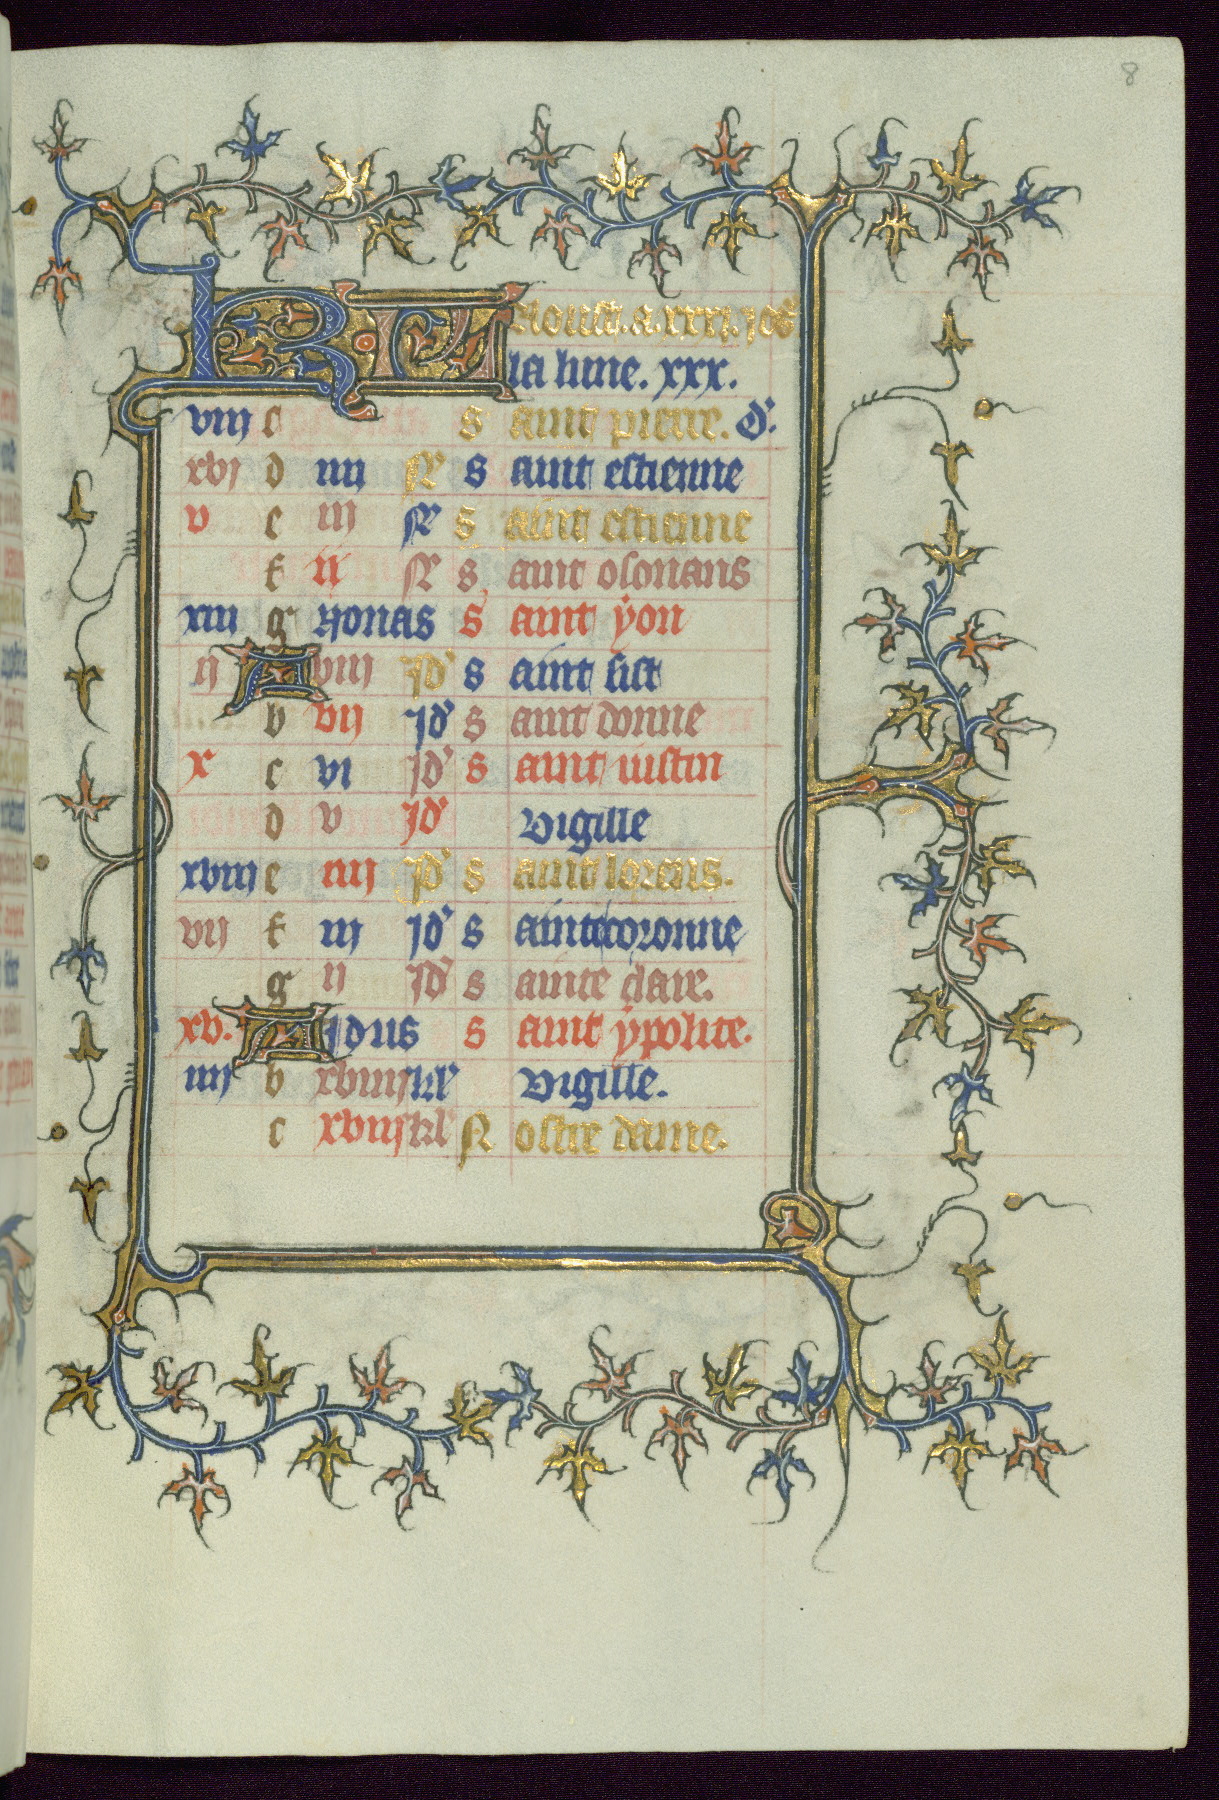 8
KL Aoust. a. xxxi. iors
la lune. xxx.
viii c s aint pierre. d'.
xvi d iiii N s aint estienne
v e iii N s aint estienne
f ii N s aint osouans
xiii g Nonas s aint yon
ii A viii id' s aint sist
b vii id' s aint donne
x c vi id' s aint iustin
d v id' vigille
xviii e iiii id' s aint lorens.
vii f iii id' s ainte coronne
g ii id' s ainte clare.
xv. A idus s aint ypolite.
iiii b xviiii kl' vigille.
c xviii kl' N ostre dame.